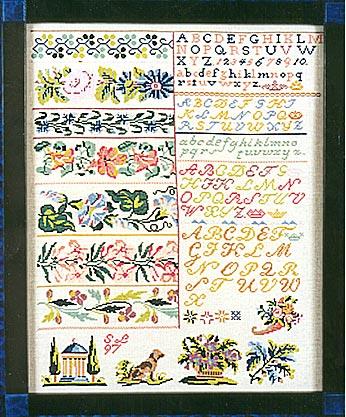 ABCDEFGHIJKLM
NOPQRSTUVW
XYZ. 12345678910.
abcdefghiklmnopq
rstuvwxyz
ABCDEFGHI
JKLMNOPQ
RSTUVWXYZ
abcdefghiklmno
pqrstuvwxyz
ABCDEFG
HIKLMN
OPQRSTUV
WXYZ
ABCDEF
GIKLM
NOPQR
STUVW
X
97